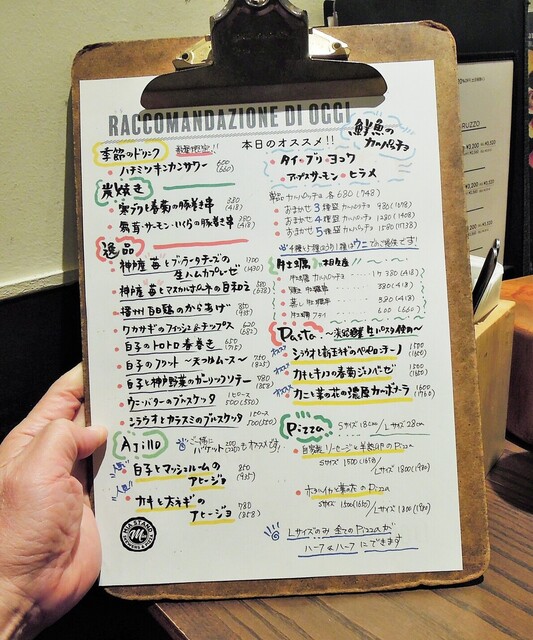 RACCOMANDAZIONE DI OGGI
本日のオススメ!!
季節のドリンク
数量限定!!
ハチミツキンカンサワー 600 (660)
炭焼き
寒ブリと春菊の豚巻き串 380 (418)
サーモン・いくらの豚巻き串 380 (418)
逸品
神戸産 苺とブッラータチーズの
生ハムカプレーゼ 1300 (1430)
神戸産 苺とマスカルポーネの白和え 580 (638)
播州百日鶏のからあげ 850 (935)
ワカサギのフィッシュ&チップス 620 (682)
白子のトロトロ春巻き 650 (715)
白子のフリット 〜天つゆムース〜 750 (825)
白子と神戸野菜のガーリックソテー 780 (858)
ウニ・バターのブルスケッタ 1ピース 500 (550)
シラウオとカラスミのブルスケッタ 1ピース 500 (550)
Ajillo
ご一緒に
バケット 200 (220) もオススメです!
人気!
白子とマッシュルームの
アヒージョ 850 (935)
人気!
カキと下仁田ネギの
アヒージョ 780 (858)
鮮魚の
カルパッチョ
タイ・ブリ・ヨコワ
アトランティックサーモン・ヒラメ
単品カルパッチョ 各 680 (748)
おまかせ 3種盛 カルパッチョ 980 (1078)
おまかせ 4種盛 カルパッチョ 1280 (1408)
おまかせ 5種盛 カルパッチョ 1580 (1738)
牡蠣
生牡蠣 カルパッチョ 1ヶ 380 (418)
牡蠣 380 (418)
蒸し牡蠣 380 (418)
牡蠣フライ 600 (660)
Pasta 〜淡路麺業 生パスタ使用〜
オススメ
シラウオと新玉ネギのペペロンチーノ 1500 (1650)
オススメ
カキとキノコの春菊ジェノベーゼ 1500 (1650)
オススメ
カニと菜の花の濃厚カルボナーラ 1600 (1760)
Pizza
Sサイズ 18cm / Lサイズ 28cm
自家製ソーセージと半熟卵のPizza
Sサイズ 1500 (1650)
/ Lサイズ 1800 (1980)
ホタルイカと菜の花のPizza
Sサイズ 1500 (1650)
/ Lサイズ 1800 (1980)
Lサイズのみ 全てのPizzaが
ハーフ&ハーフにできます
STAND
RUZZO